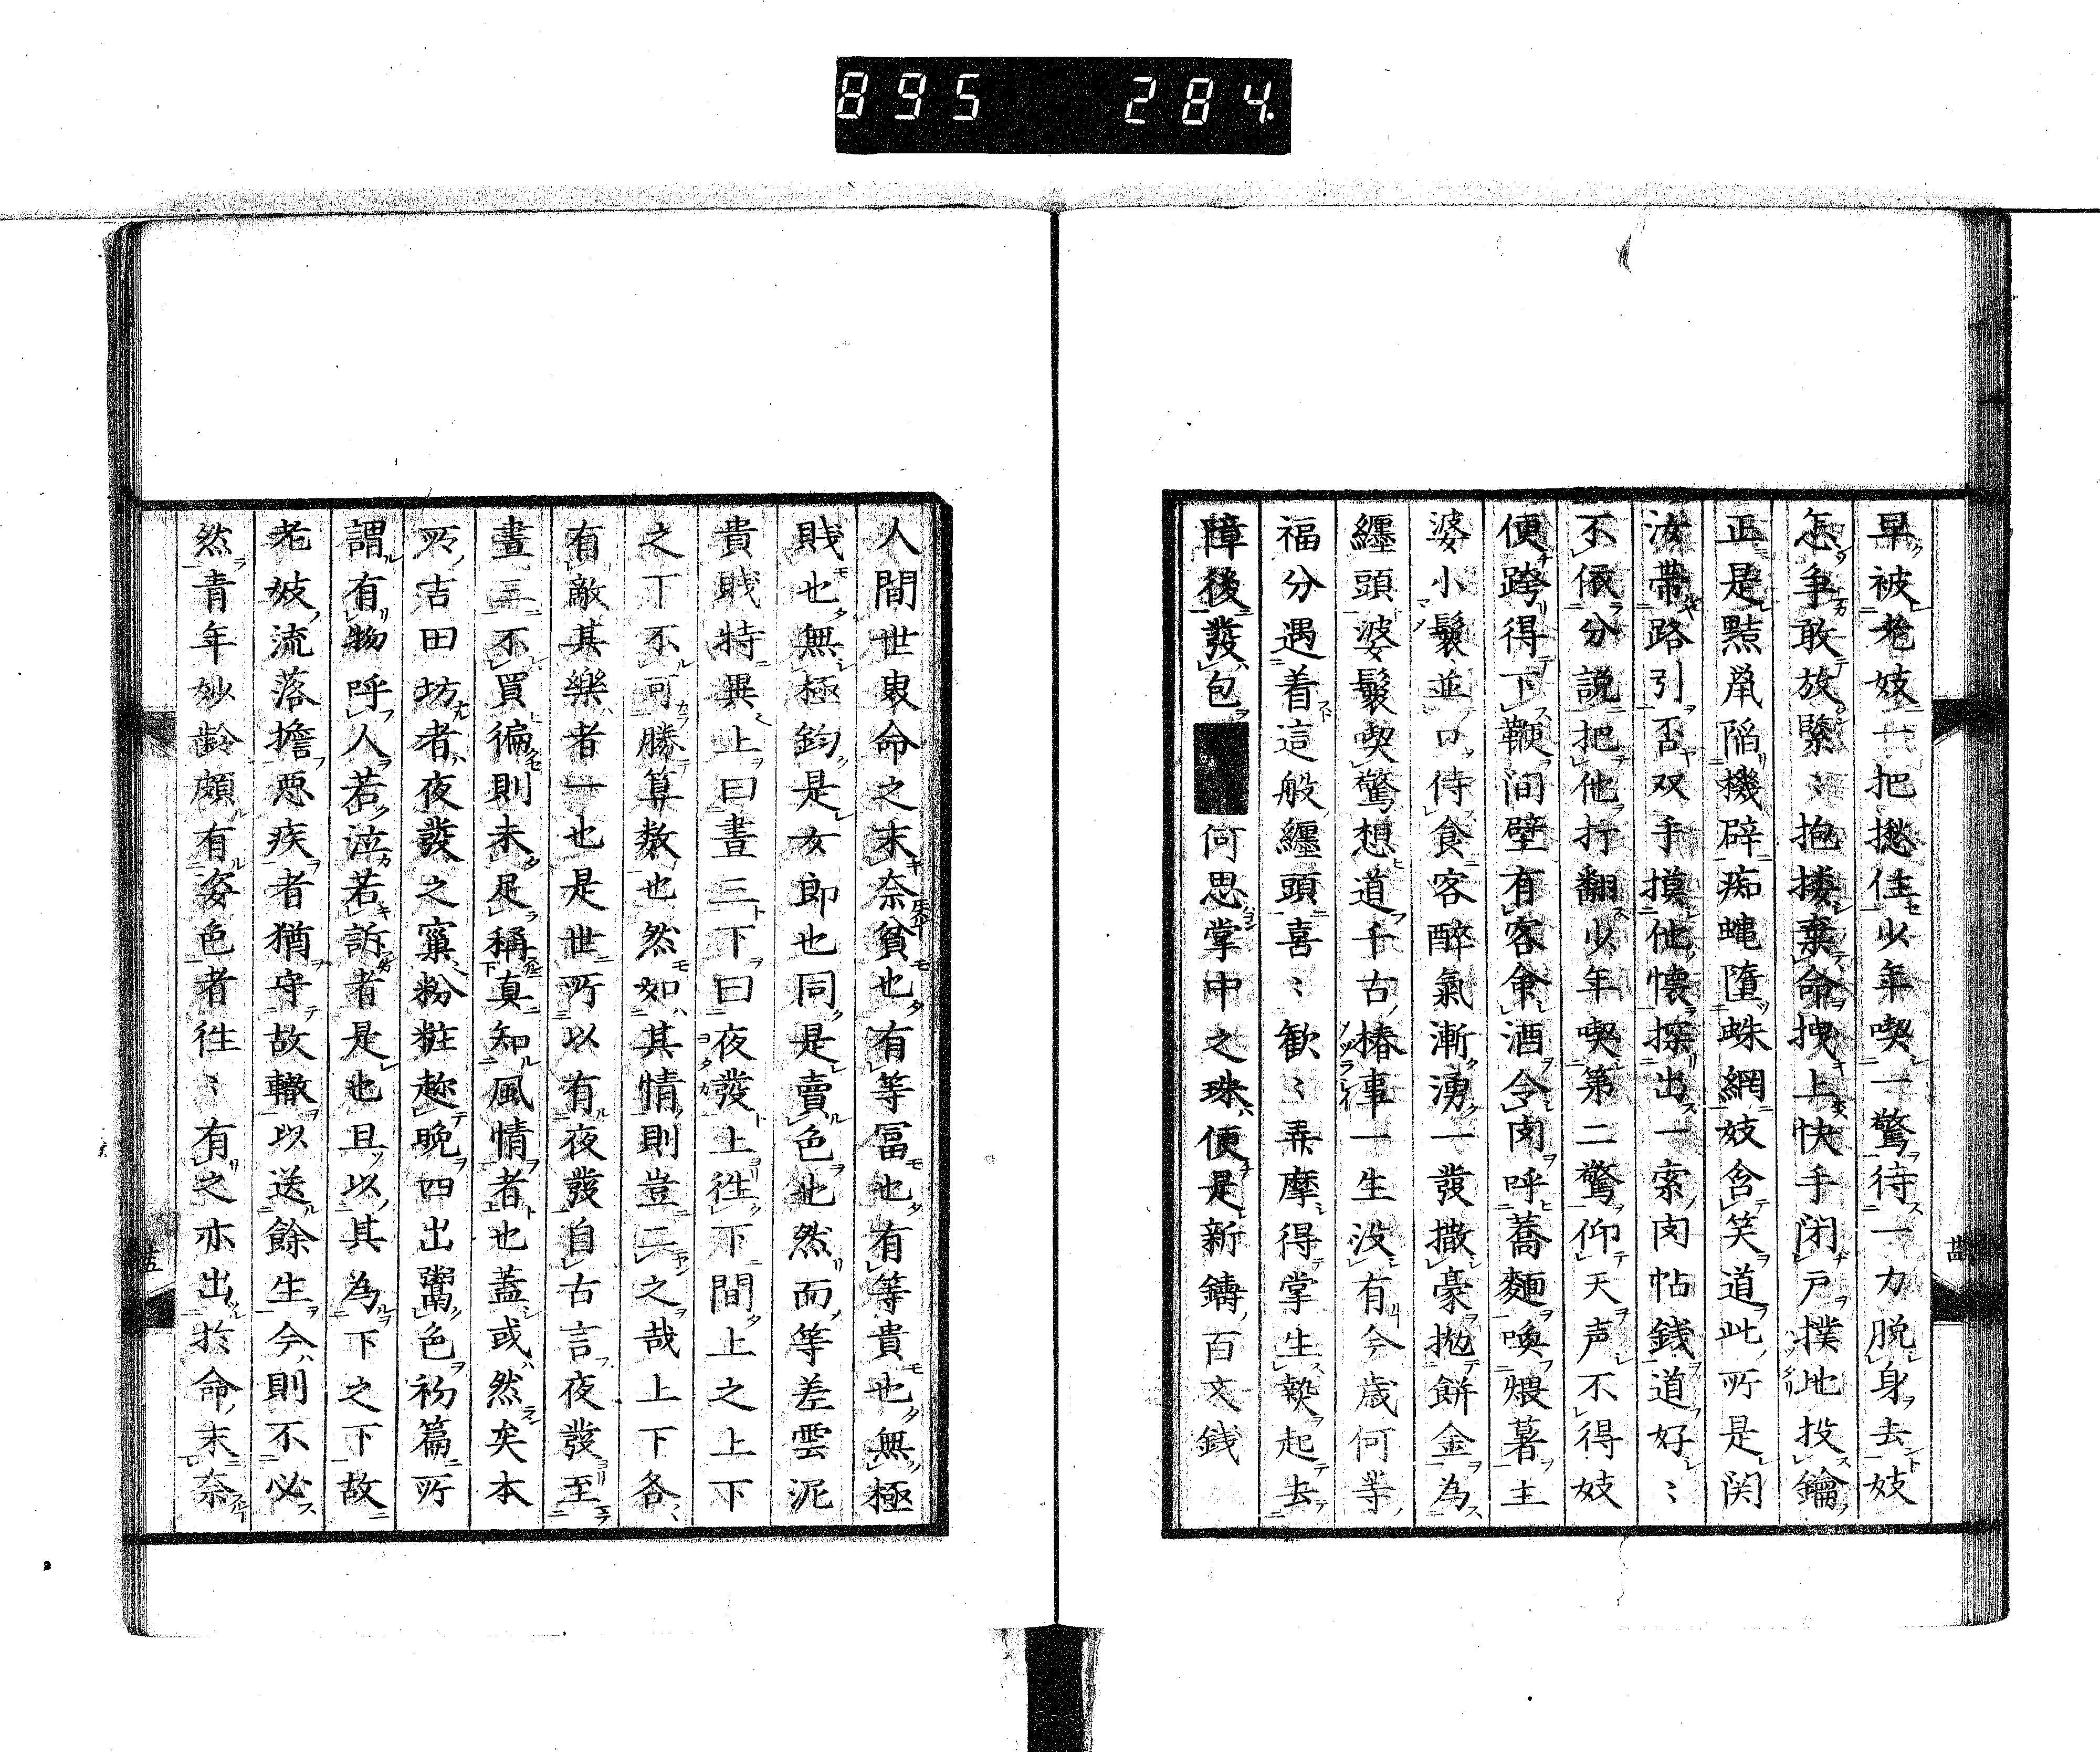 895 284
早被老妓一把摠住少年喫一驚待一力脱身去妓
怎争敢放緊〻抱摟棄命拽上快手閉戸撲地投鑰
正是黠鼡陥機辟痴蠅墮蛛網妓含笑道此所是関
汝帯路引否双手摸他懐探出一索肉帖錢道好〻
不依分説把他打翻少年喫第二驚仰天声不得妓
便跨得下鞭間壁有客命酒令肉呼蕎麺喚煨薯主
婆小鬟並口待食客醉氣漸湧一發撒豪抛餅金為
纏頭婆鬟喫驚想道千古椿事一生没有今歳何等
福分遇着這般纏頭喜〻歓〻弄摩得掌生熱起去
障後發包何思掌中之珠便是新鑄百文銭
人間世衷命之末奈貧也有等冨也有等貴也無極
賎也無極鈞是女郎也同是賣色也然而等差雲泥
貴賎特異上曰晝三下曰夜發上徃下間上之上下
之下不可勝算数也然如其情則豈二之哉上下各
有敵其樂者一也是世所以有夜發自古言夜發至
晝三不買徧則未足稱真知風情者也蓋或然矣本
所吉田坊者夜發之窠粉粧趂晩四出鬻色礽篇所
謂有物呼人若泣若訴者是也且以其為下之下故
老妓流落擔悪疾者猶守故轍以送餘生今則不必
然青年妙齡頗有姿色者徃〻有之亦出於命末奈